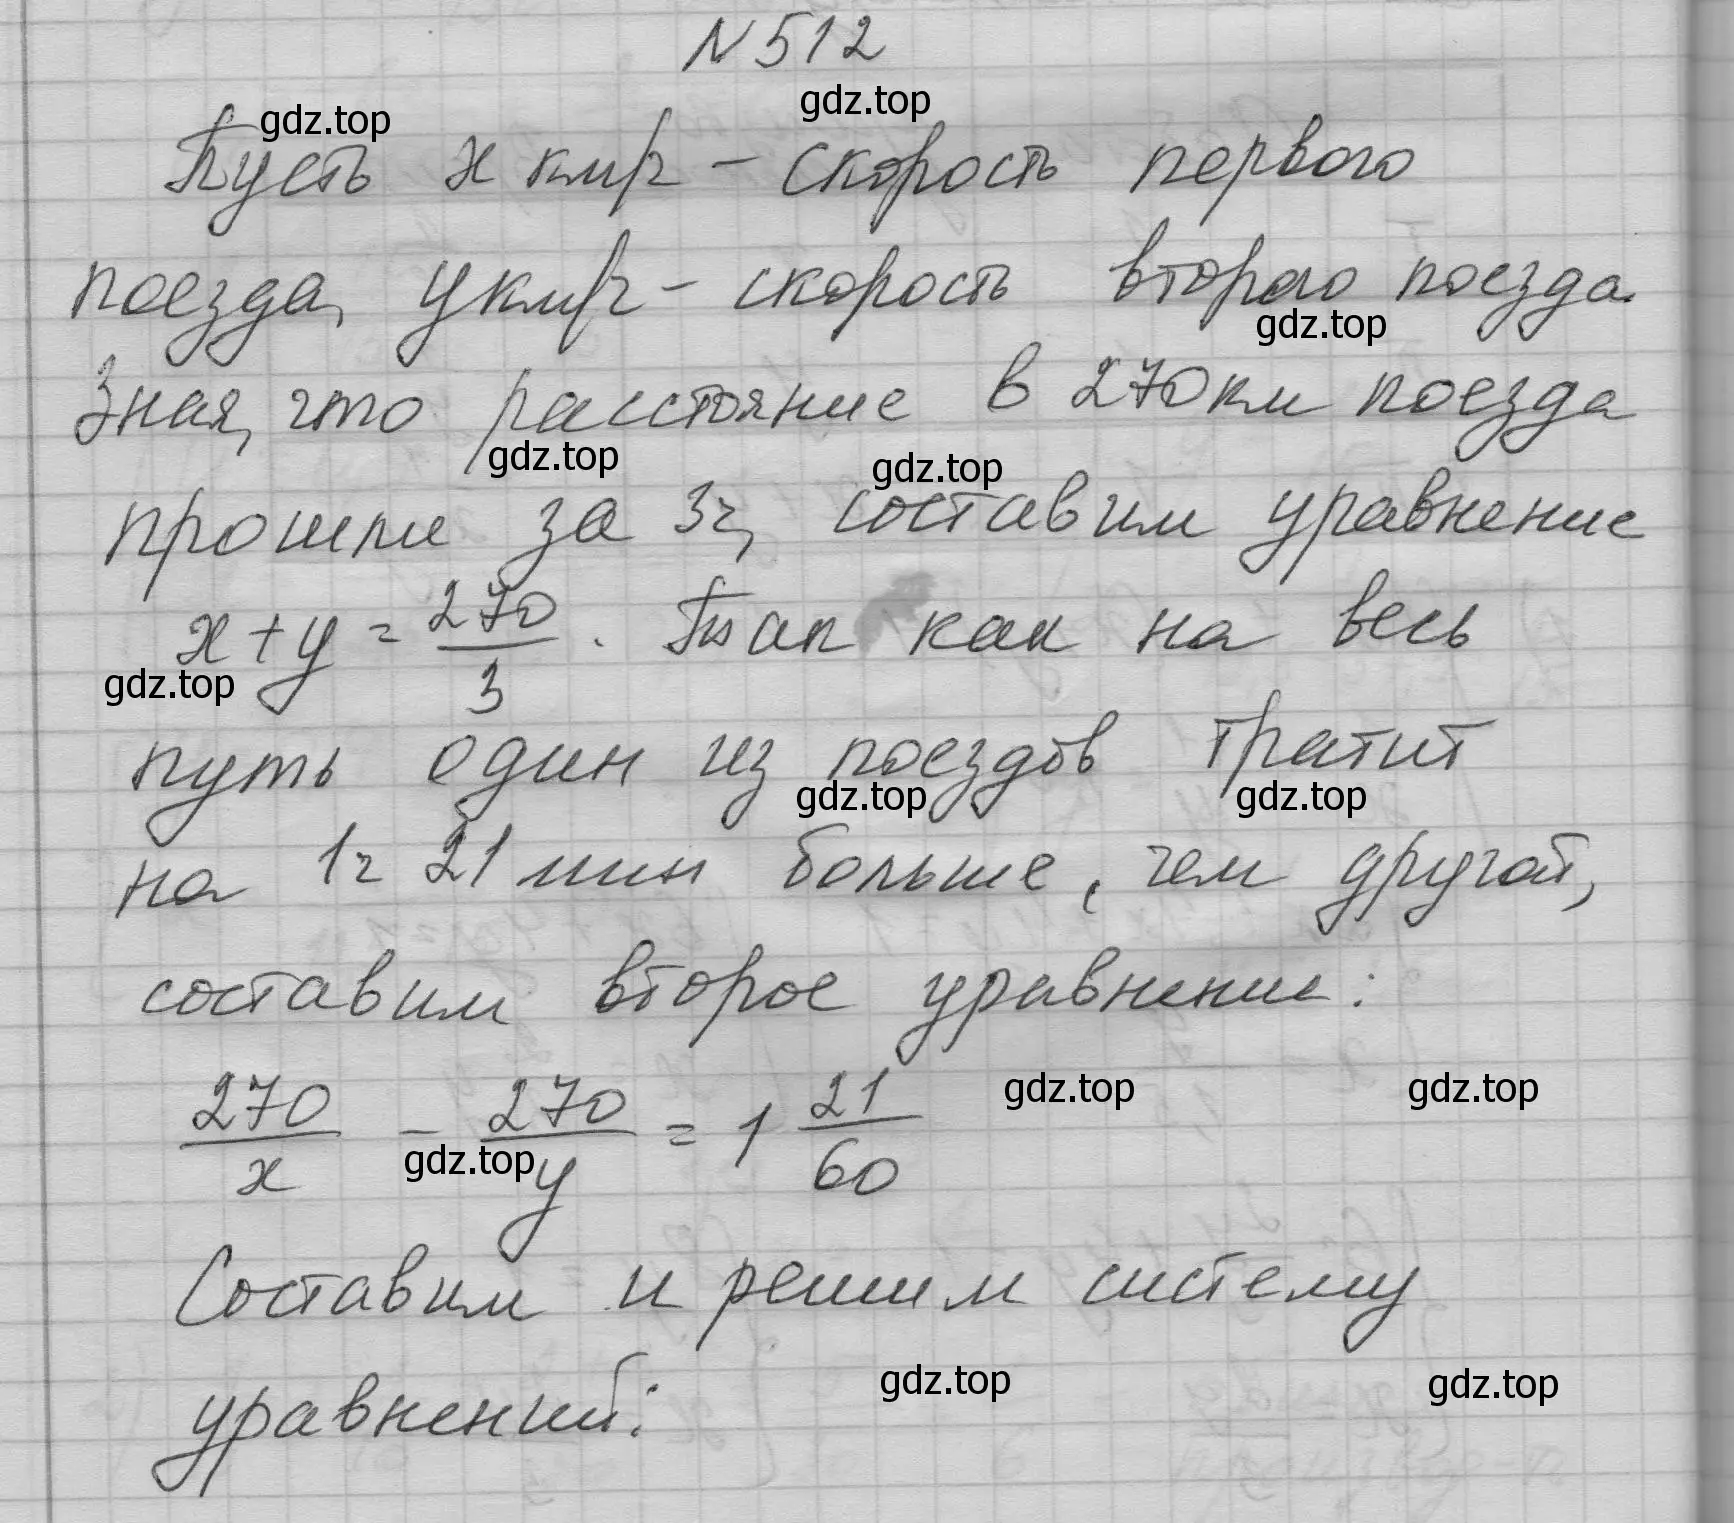 N512
gdz.top
gdz.top
Пусть x км/ч - скорость первого
поезда, y км/ч - скорость второго поезда.
gdz.top
Зная, что расстояние в 270 км поезда
gdz.top
gdz.top
прошли за 3ч, составим уравнение
x + y = 270/3 . Так как на весь
gdz.top
путь один из поездов тратит
gdz.top
gdz.top
на 1ч 21 мин больше, чем другой,
составим второе уравнение:
gdz.top
gdz.top
270/x - 270/y = 1 21/60
gdz.top
Составим и решим систему
gdz.top
gdz.top
уравнений: